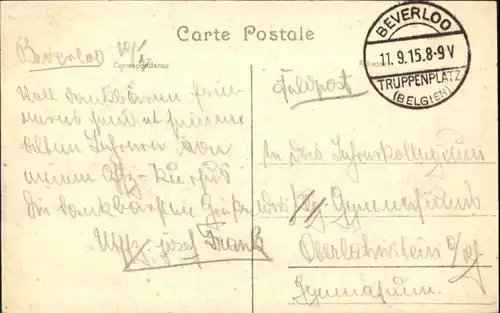 Carte Postale
BEVERLOO
11. 9. 15. 8-9 V
TRUPPENPLATZ
(BELGIEN)
Beverloo
Correspondance
Voll dankbaren
an seine
alten Lehrer von
meinem Offz-Kursus
die dankbarsten Grüße
Uffz. Josef Frank
Feldpost
An das Lehrerkollegium
des Kgl. Gymnasiums
Oberlahnstein a/Rh.
Gymnasium.